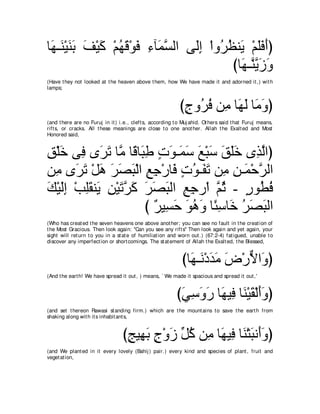 أَفَلَمْ يَنظُرُواْ إِلَى السَّمَآءِ فَوْقَهُمْ كَيْفَ بَنَيْنَـهَا
وَزَيَّنَّـهَا)
(Have they not looked at the heaven above them, how We have made it and adorned it,) with
lamps;
(وَمَا لَهَا مِن فُرُوجٍ)
(and there are no Furuj in it) i.e., clefts, according to Mujahid. Others said that Furuj means,
rifts, or cracks. All these meanings are close to one another. Allah the Exalted and Most
Honored said,
(الَّذِى خَلَقَ سَبْعَ سَمَـوَتٍ طِبَاقًا مَّا تَرَى فِى خَلْقِ
الرَّحْمَـنِ مِن تَفَـوُتٍ فَارْجِعِ الْبَصَرَ هَلْ تَرَى مِن
فُطُورٍ - ثُمَّ ارجِعِ البَصَرَ كَرَّتَيْنِ يَنْقَلِبْ إِلَيْكَ
الْبَصَرُ خَاسِئًا وَهُوَ حَسِيرٌ )
(Who has created the seven heavens one above another; you can see no fault in the creation of
the Most Gracious. Then look again: "Can you see any rifts" Then look again and yet again, your
sight will return to you in a state of humiliation and worn out.) (67:2-4) fatigued, unable to
discover any imperfection or shortcomings. The statement of Allah the Exalted, the Blessed,
(وَالأٌّرْضَ مَدَدْنَـهَا)
(And the earth! We have spread it out, ) means, `We made it spacious and spread it out,'
(وَأَلْقَيْنَا فِيهَا رَوَاسِيَ)
(and set thereon Rawasi standing firm.) which are the mountains to save the earth from
shaking along with its inhabitants,
(وَأَنبَتْنَا فِيهَا مِن كُلِّ زَوْجٍ بَهِيجٍ)
(and We planted in it every lovely (Bahij) pair.) every kind and species of plant, fruit and
vegetation,